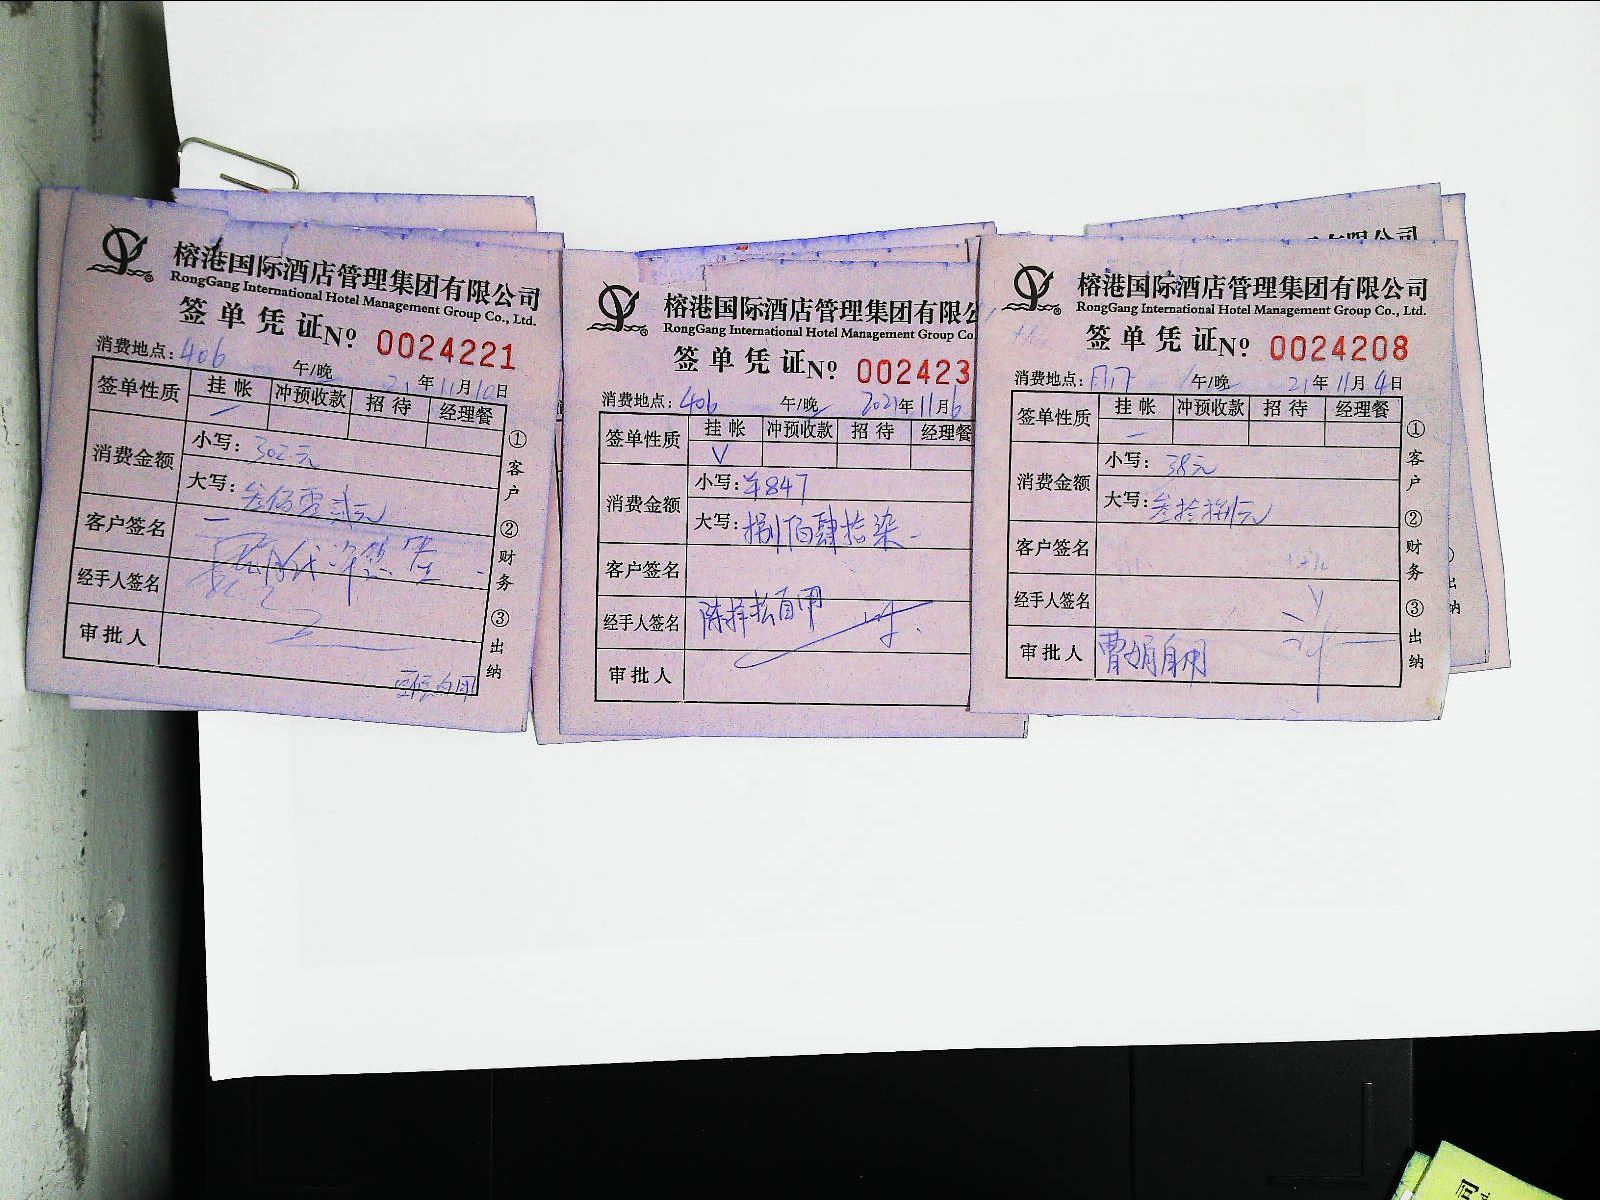 榕港国际酒店管理集团有限公司
RongGang International Hotel Management Group Co., Ltd.
签单凭证 Nº 0024221
消费地点：406 午/晚 21年11月10日
签单性质 挂帐 冲预收款 招待 经理餐
消费金额
小写：302元
大写：叁佰零贰元
客户签名
经手人签名
审批人
①客户 ②财务 ③出纳
榕港国际酒店管理集团有限公
RongGang International Hotel Management Group Co
签单凭证 Nº 002423
消费地点：406 午/晚 2021年11月6
签单性质 挂帐 冲预收款 招待 经理餐
消费金额
小写：¥847
大写：捌佰肆拾柒
客户签名
经手人签名 陈祥松自用
审批人
有限公司
榕港国际酒店管理集团有限公司
RongGang International Hotel Management Group Co., Ltd.
签单凭证 Nº 0024208
消费地点： 午/晚 21年11月4日
签单性质 挂帐 冲预收款 招待 经理餐
消费金额
小写：38元
大写：叁拾捌元
客户签名
经手人签名
审批人 曹娟自用
①客户 ②财务 ③出纳
出纳
司